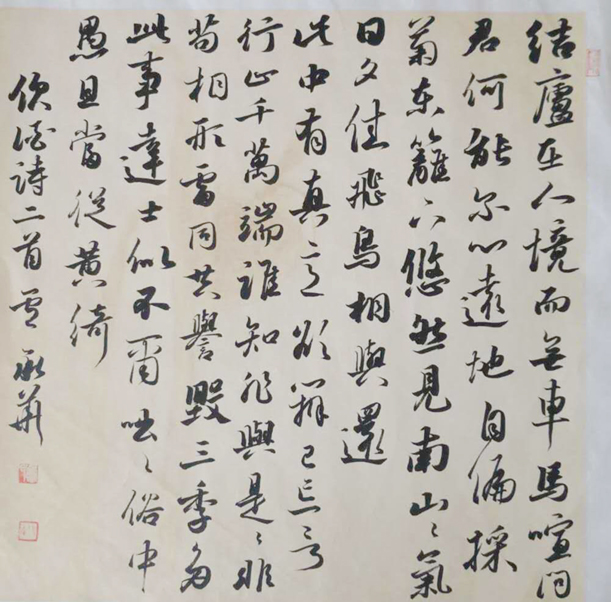 结廬在人境而无車馬喧问
君何能尔心遠地自偏採
菊东籬下悠然見南山々氣
日夕佳飛鳥相與還
此中有真意欲辨已忘言
行止千萬端誰知非與是々非
苟相形雷同共譽毀三季多
此事達士似不爾咄々俗中
愚且當從黄綺
饮酒詩二首